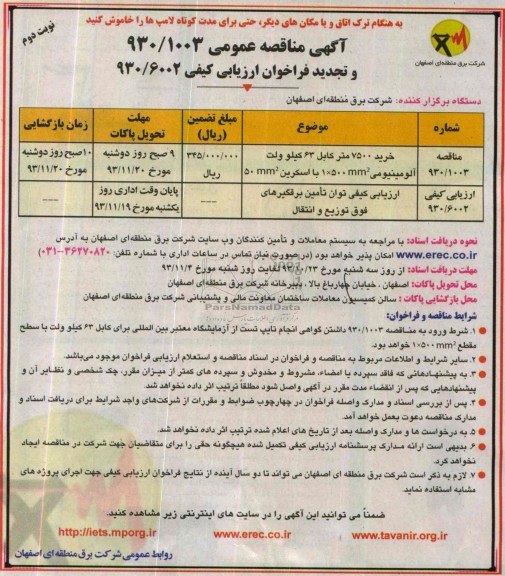 به هنگام ترک اتاق و یا مکان های دیگر، حتی برای مدت کوتاه لامپ ها را خاموش کنید
نوبت دوم
شرکت برق منطقه‌ای اصفهان
آگهی مناقصه عمومی ۹۳۰/۱۰۰۳
و تجدید فراخوان ارزیابی کیفی ۹۳۰/۶۰۰۲
دستگاه برگزار کننده: شرکت برق منطقه‌ای اصفهان
شماره موضوع مبلغ تضمین (ریال) مهلت تحویل پاکات زمان بازگشایی
مناقصه ۹۳۰/۱۰۰۳ خرید ۷۵۰۰ متر کابل ۶۳ کیلو ولت آلومینیومی ۱×۵۰۰ mm² با اسکرین ۵۰ mm² ۳۴۵/۰۰۰/۰۰۰ ریال ۹ صبح روز دوشنبه مورخ ۹۳/۱۱/۲۰ ۱۰ صبح روز دوشنبه مورخ ۹۳/۱۱/۲۰
ارزیابی کیفی ۹۳۰/۶۰۰۲ ارزیابی کیفی توان تأمین برقگیرهای فوق توزیع و انتقال ---- پایان وقت اداری روز یکشنبه مورخ ۹۳/۱۱/۱۹ ----
نحوه دریافت اسناد: با مراجعه به سیستم معاملات و تأمین کنندگان وب سایت شرکت برق منطقه‌ای اصفهان به آدرس
www.erec.co.ir امکان پذیر خواهد بود (در صورت نیاز تماس در ساعات اداری با شماره تلفن: ۳۶۲۷۰۸۲۰-۰۳۱)
مهلت دریافت اسناد: از روز سه شنبه مورخ ۹۳/۱۰/۲۳ لغایت روز شنبه مورخ ۹۳/۱۱/۴
محل تحویل پاکات: اصفهان ، خیابان چهارباغ بالا ، دبیرخانه شرکت برق منطقه‌ای اصفهان
محل بازگشایی پاکات : سالن کمیسیون معاملات ساختمان معاونت مالی و پشتیبانی شرکت برق منطقه‌ای اصفهان
ParsNamadData
شرایط مناقصه و فراخوان:
۱. شرط ورود به مناقصه ۹۳۰/۱۰۰۳ داشتن گواهی انجام تایپ تست از آزمایشگاه معتبر بین المللی برای کابل ۶۳ کیلو ولت با سطح
مقطع ۱×۵۰۰ mm² خواهد بود.
۲. سایر شرایط و اطلاعات مربوط به مناقصه و فراخوان در اسناد مناقصه و استعلام ارزیابی فراخوان موجود می‌باشد.
۳. به پیشنهادهائی که فاقد سپرده یا امضاء، مشروط و مخدوش و سپرده های کمتر از میزان مقرر، چک شخصی و نظایر آن و
پیشنهادهایی که پس از انقضاء مدت مقرر در آگهی واصل شود مطلقاً ترتیب اثر داده نخواهد شد.
۴. پس از بررسی اسناد و مدارک واصله فراخوان در چهارچوب ضوابط و مقررات از شرکت‌های واجد شرایط برای دریافت اسناد و
مدارک مناقصه دعوت بعمل خواهد آمد.
۵. به درخواست ها و مدارک واصله بعد از تاریخ های اعلام شده ترتیب اثر داده نخواهد شد.
۶. بدیهی است ارائه مدارک پرسشنامه ارزیابی کیفی تکمیل شده هیچگونه حقی را برای متقاضیان جهت شرکت در مناقصه ایجاد
نخواهد کرد.
۷. لازم به ذکر است شرکت برق منطقه ای اصفهان می تواند تا دو سال آینده از نتایج فراخوان ارزیابی کیفی جهت اجرای پروژه های
مشابه استفاده نماید.
ضمناً می توانید این آگهی را در سایت های اینترنتی زیر مشاهده کنید.
http://iets.mporg.ir www.erec.co.ir www.tavanir.org.ir
روابط عمومی شرکت برق منطقه‌ای اصفهان